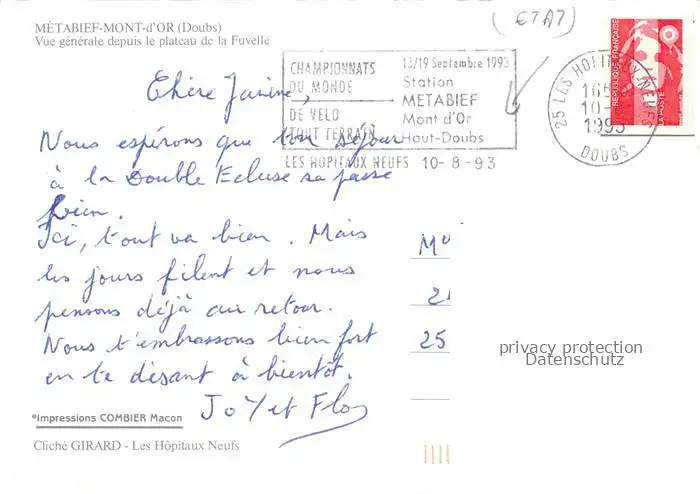 MÉTABIEF-MONT-d'OR (Doubs)
Vue générale depuis le plateau de la Fuvelle
CHAMPIONNATS
DU MONDE
DE VELO
TOUT TERRAIN
13/19 Septembre 1993
Station
METABIEF
Mont d'Or
Haut-Doubs
LES HOPITAUX NEUFS 10-8-93
25 LES HOPITAUX NEUFS
16H
10-
1993
DOUBS
REPUBLIQUE FRANÇAISE
LA POSTE
Chère Janine,
Nous espérons que ton séjour
à la Double Ecluse se passe
bien.
Ici, tout va bien. Mais
les jours filent et nous
pensons déjà au retour.
Nous t'embrassons bien fort
en te disant à bientôt.
JoY et Flo
25
privacy protection
Datenschutz
®Impressions COMBIER Macon
Cliché GIRARD - Les Hôpitaux Neufs